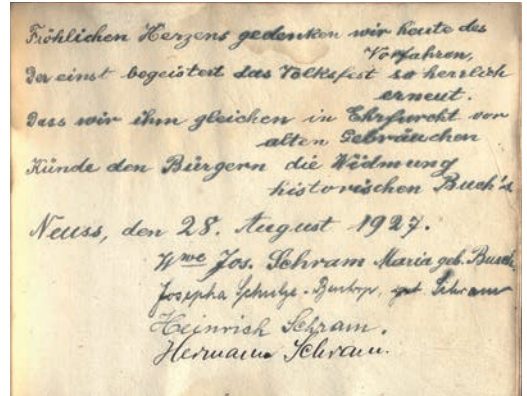 Fröhlichen Herzens gedenken wir heute des
Vorfahren,
Der einst begeistert das Volksfest so herrlich
erneut.
Dass wir ihm gleichen in Ehrfurcht vor
alten Gebräuchen
Künde den Bürgern die Widmung
historischen Buch's.
Neuss, den 28. August 1927.
Wwe Jos. Schram Maria geb. Busch
Josepha Schulze- geb. Schram
Heinrich Schram.
Hermann Schram.